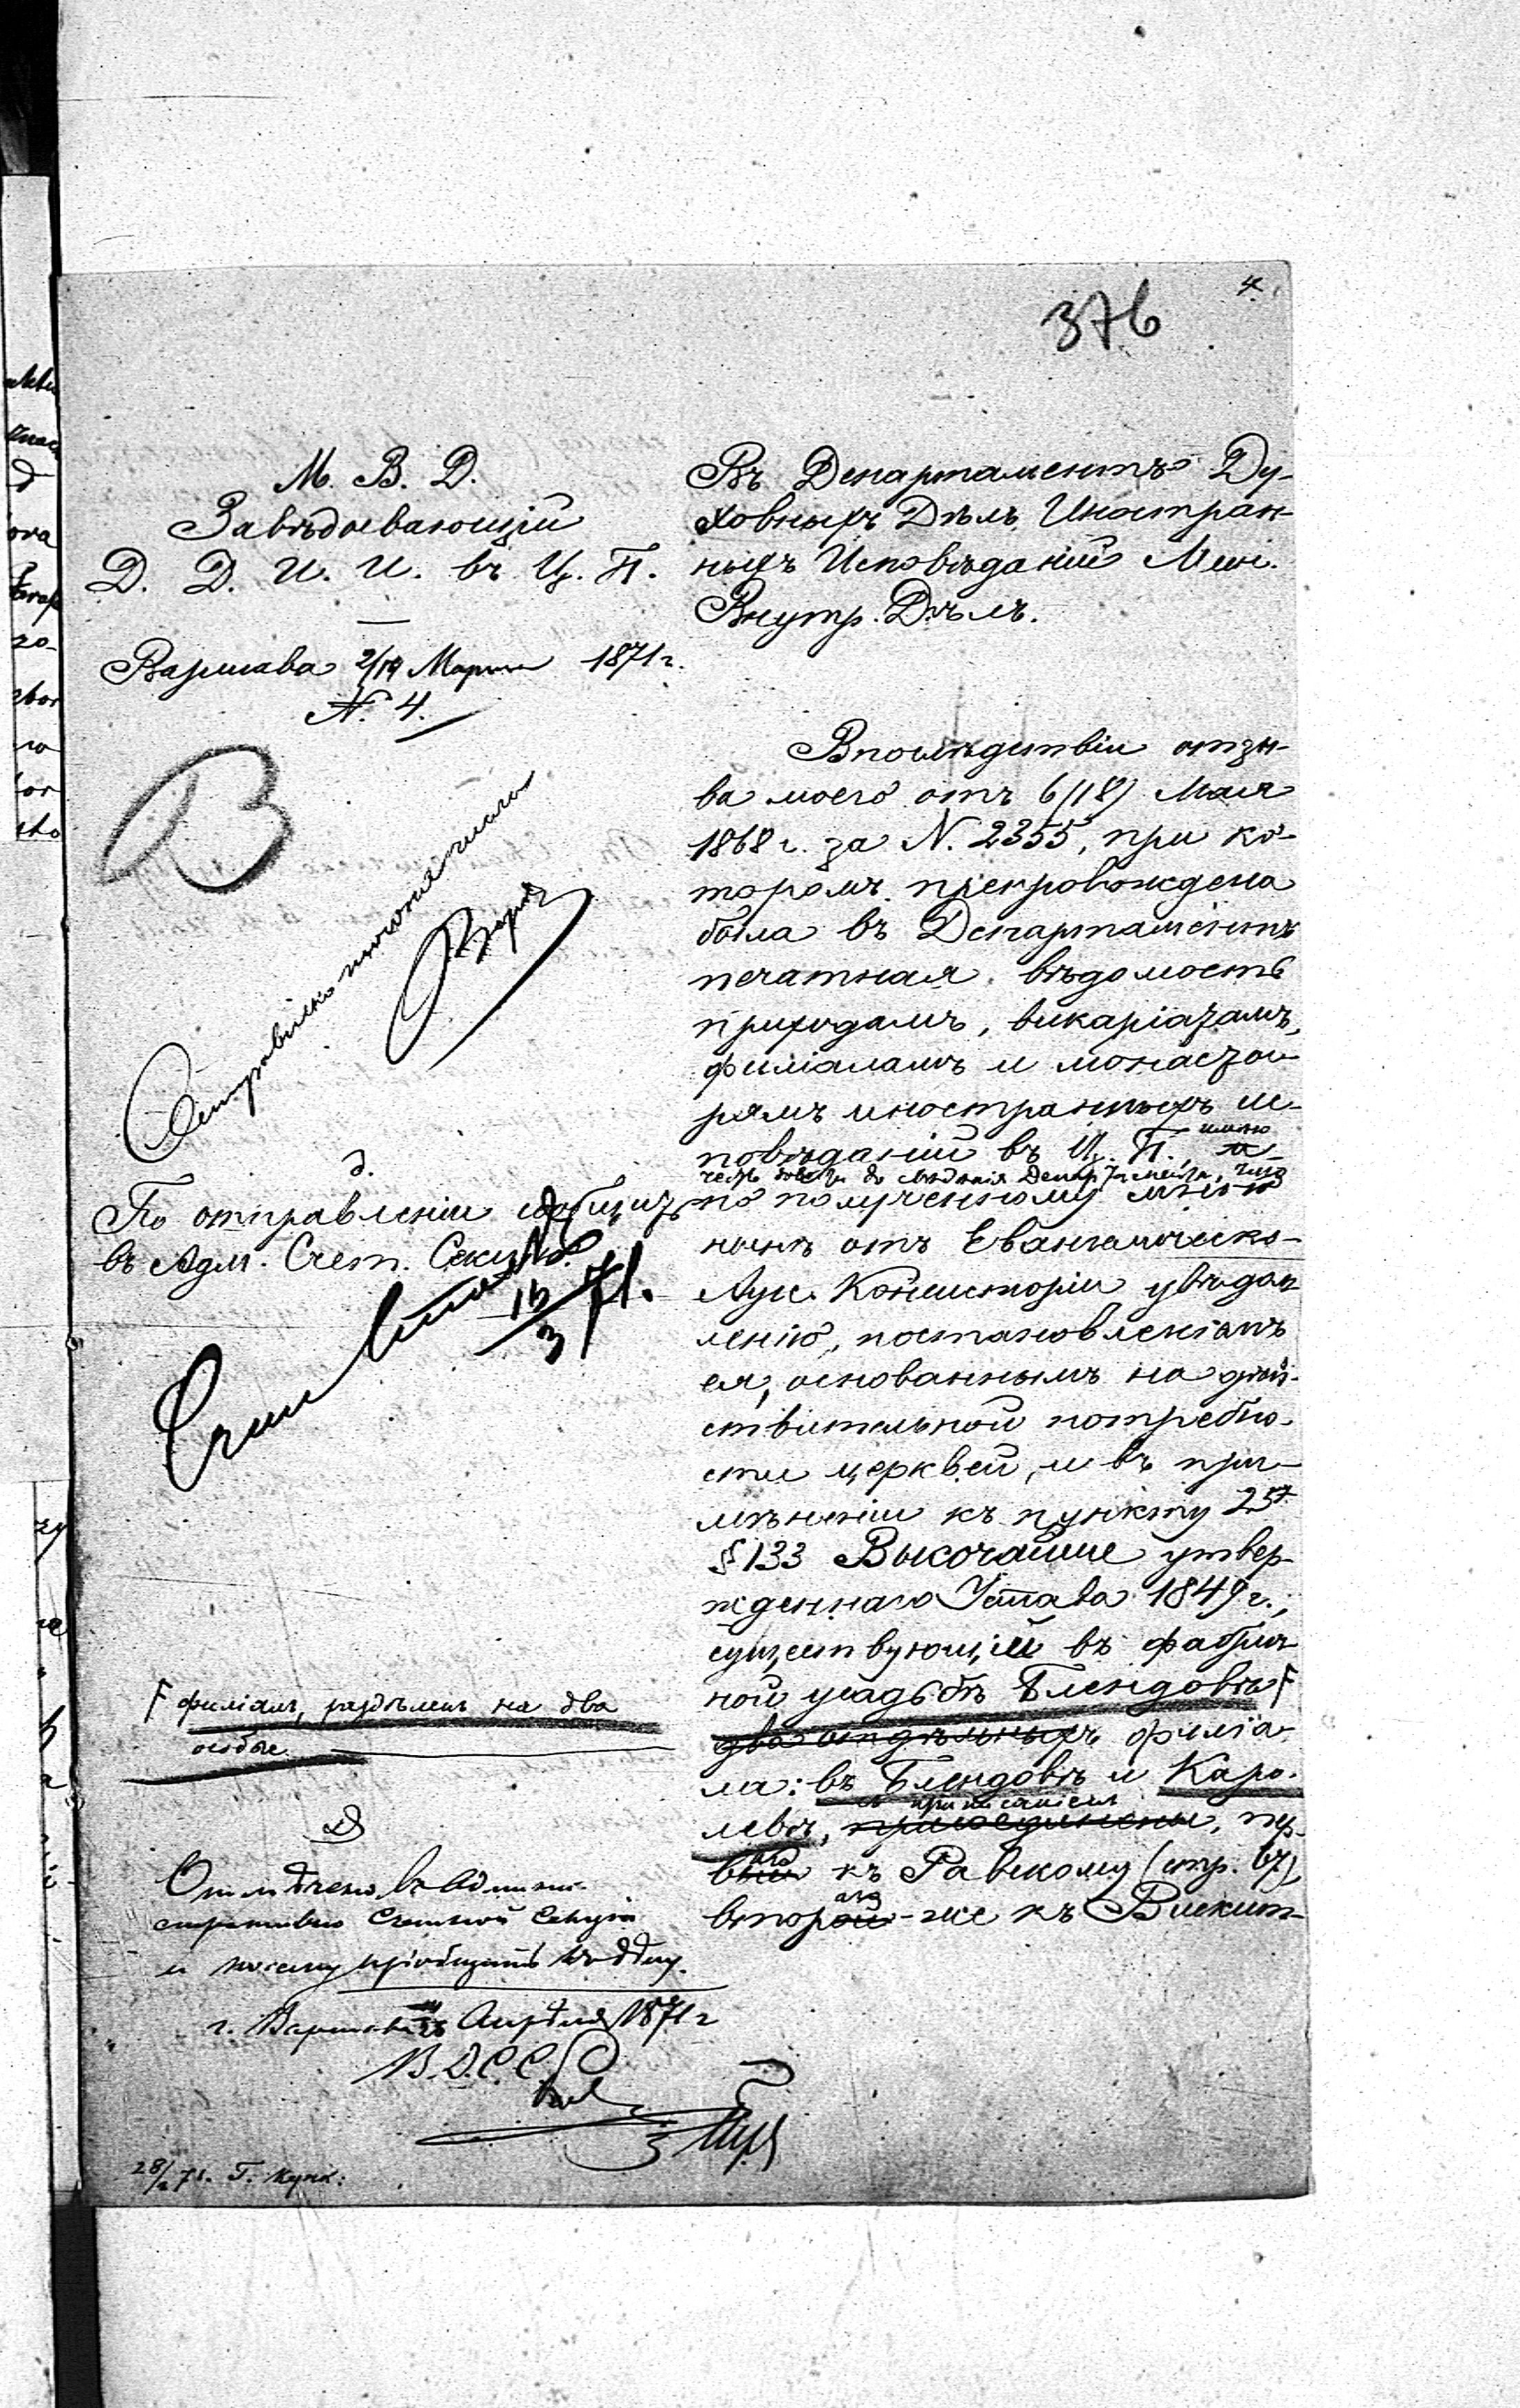 4.
376
М. В. Д.
Завѣдывающій
Д. Д. И. И. въ Ц. П.
Варшава 2/14 Марта 1871 г.
№. 4.
В
По отправленіи сообщить
въ Адм. Счет. Секц.
16/3 71.
F филіалъ, раздѣленъ на два
особые
Отмѣчено въ Админи-
стративно Счетной Секціи
и посему пріобщить къ дѣлу.
г. Варшава Апрѣля 1871 г
В. Д. С. С.
28/2 71. Г.
Въ Департаментъ Ду-
ховныхъ Дѣлъ Иностран-
ныхъ Исповѣданій Мин.
Внутр. Дѣлъ.
Впослѣдствіи отзы-
ва моего отъ 6/18/ Мая
1868 г. за N. 2355, при ко-
торомъ препровождена
была въ Департаментъ
печатная вѣдомость
приходамъ, викаріатамъ,
филіаламъ и монасты-
рямъ иностранныхъ ис-
повѣданій въ Ц. П., имѣю
честь довести до свѣдѣнія Департамента, что
по полученному мною
нынѣ отъ Евангелическо-
Аугс. Консисторіи увѣдом-
ленію, постановленіемъ
ея, основаннымъ на дѣй-
ствительной потребно-
сти церквей, и въ при-
мѣненіи къ пункту 25
§ 133 Высочайше утвер-
жденнаго Устава 1849 г.,
существующій въ фабрич-
ной усадьбѣ Блендовѣ F
два отдѣльныхъ филіа-
ла: въ Блендовѣ и Каро-
левѣ, съ приписаніемъ, пер-
ваго къ Равскому (стр. 67),
втораго-же къ Вискит-